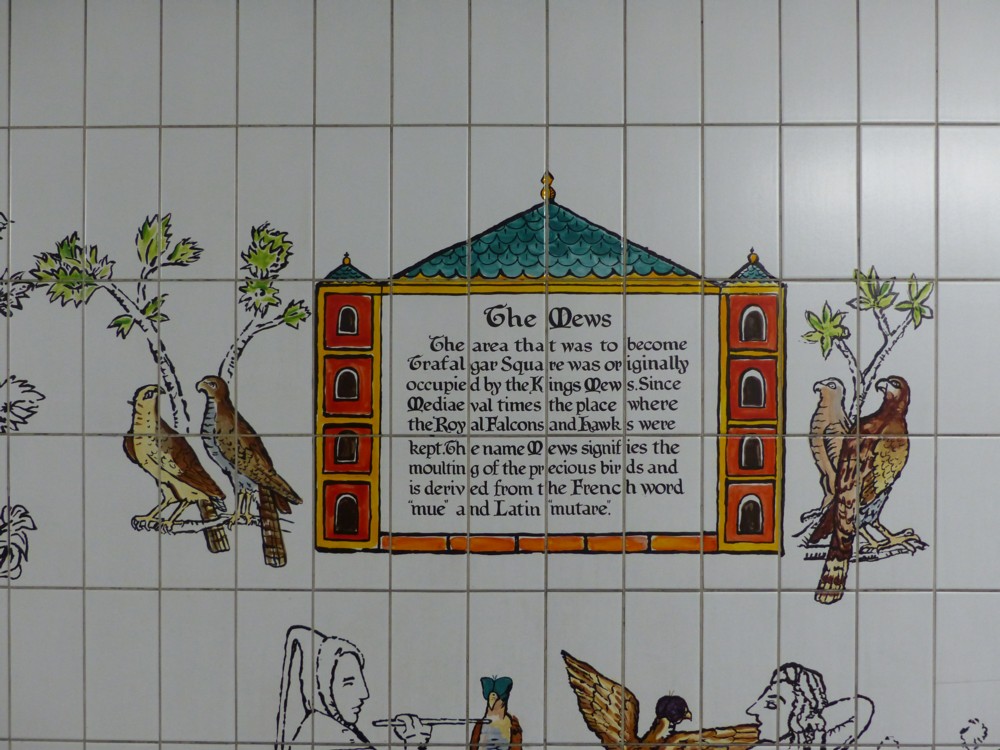 The Mews
The area that was to become
Trafalgar Square was originally
occupied by the Kings Mews. Since
Mediaeval times the place where
the Royal Falcons and Hawks were
kept. The name Mews signifies the
moulting of the precious birds and
is derived from the French word
"mue" and Latin "mutare".